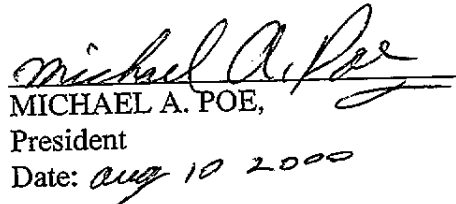 Michael A. Poe
MICHAEL A. POE,
President
Date: Aug 10 2000